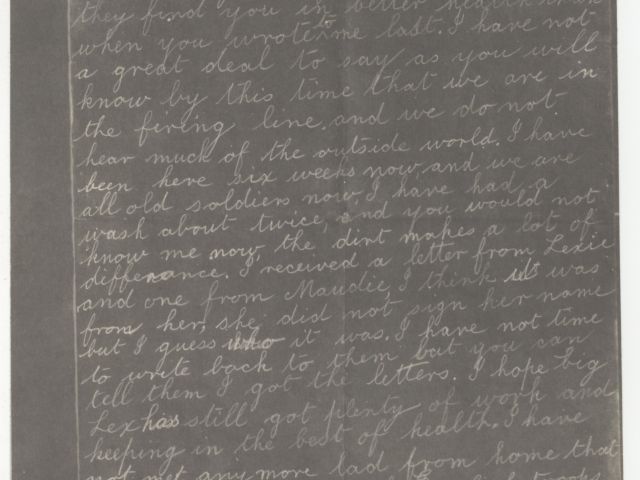 they find you in better health than
when you wrote to me last. I have not
a great deal to say as you will
know by this time that we are in
the firing line. and we do not
hear much of the outside world. I have
been here six weeks now, and we are
all old soldiers now, I have had a
wash about twice, and you would not
know me now, the dirt makes a lot of
differance. I received a letter from Lexie
and one from Maudie, I think it was
from her, she did not sign her name
but I guess who it was. I have not time
to write back to them but you can
tell them I got the letters. I hope big
Lex has still got plenty of work and
keeping in the best of health. I have
not met any more lad from home that